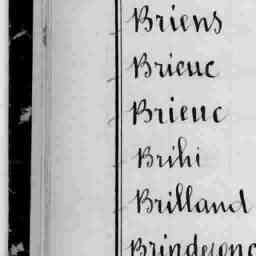 Briens
Brieuc
Brieuc
Brihi
Brilland